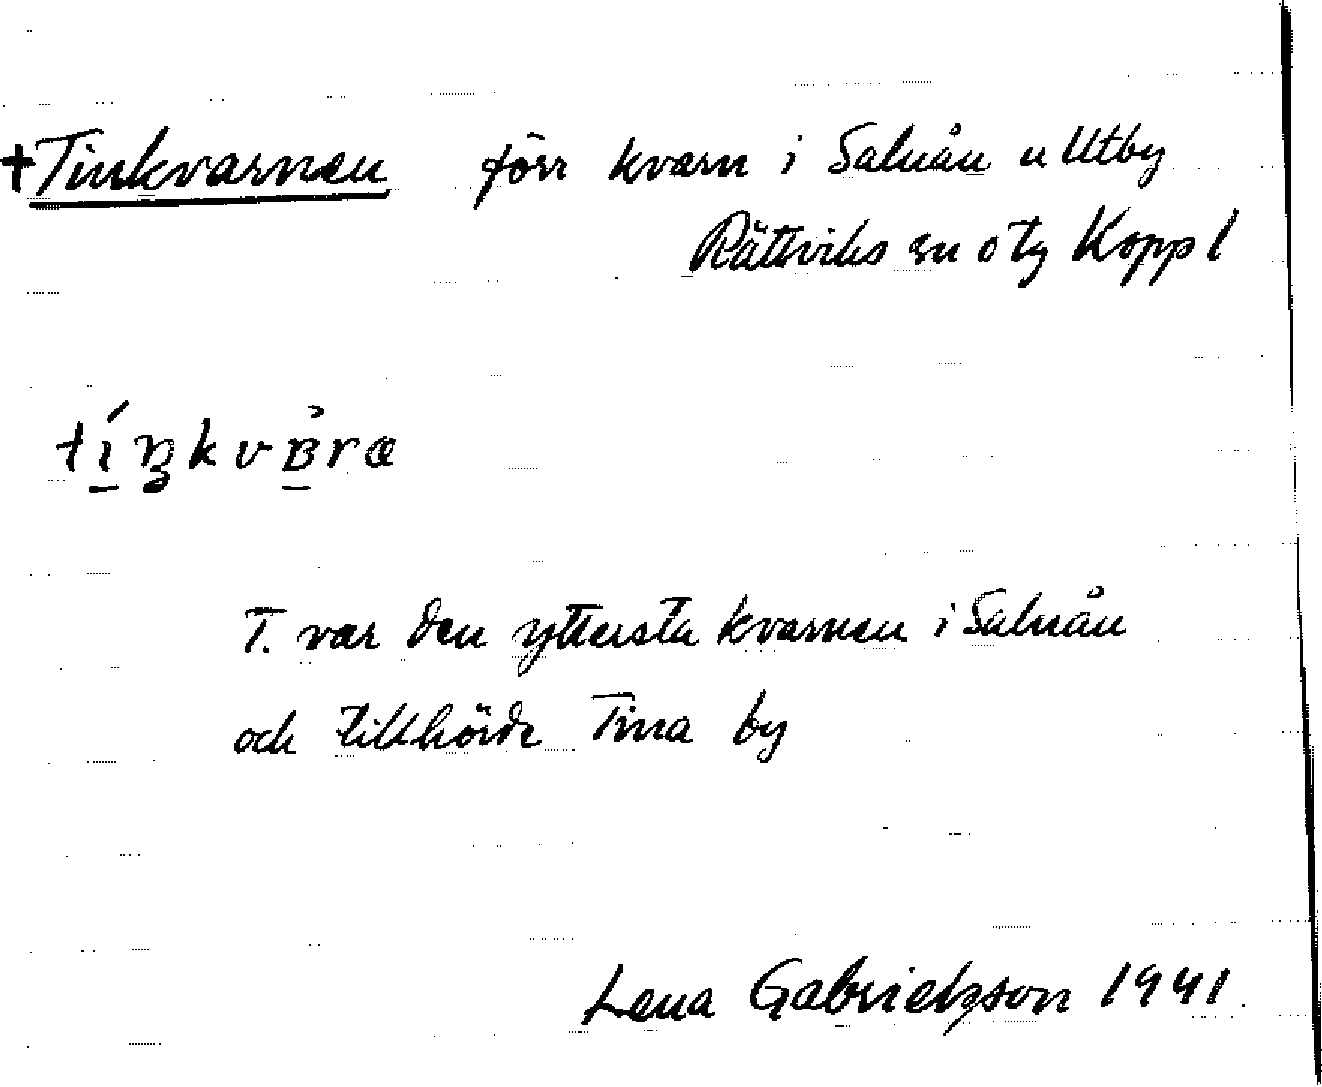 †Tinkvarnen förr kvarn i Saluån u Utby
Rättviks sn o tg Koppl
T. var den yttersta kvarnen i Saluån
och tillhörde Tina by
Lena Gabrielsson 1941